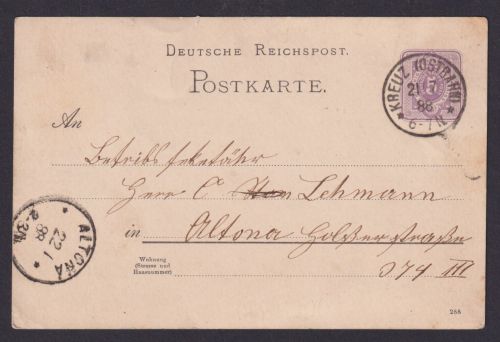 DEUTSCHE REICHSPOST.
POSTKARTE.
KREUZ (OSTBAHN)
88
6-7 N.
An
Betriebssekretär
Herr C Lehmann
in Altona Holsterstraße
Wohnung
(Strasse und
Hausnummer)
179 III
ALTONA
22
1
88
2-3N
288